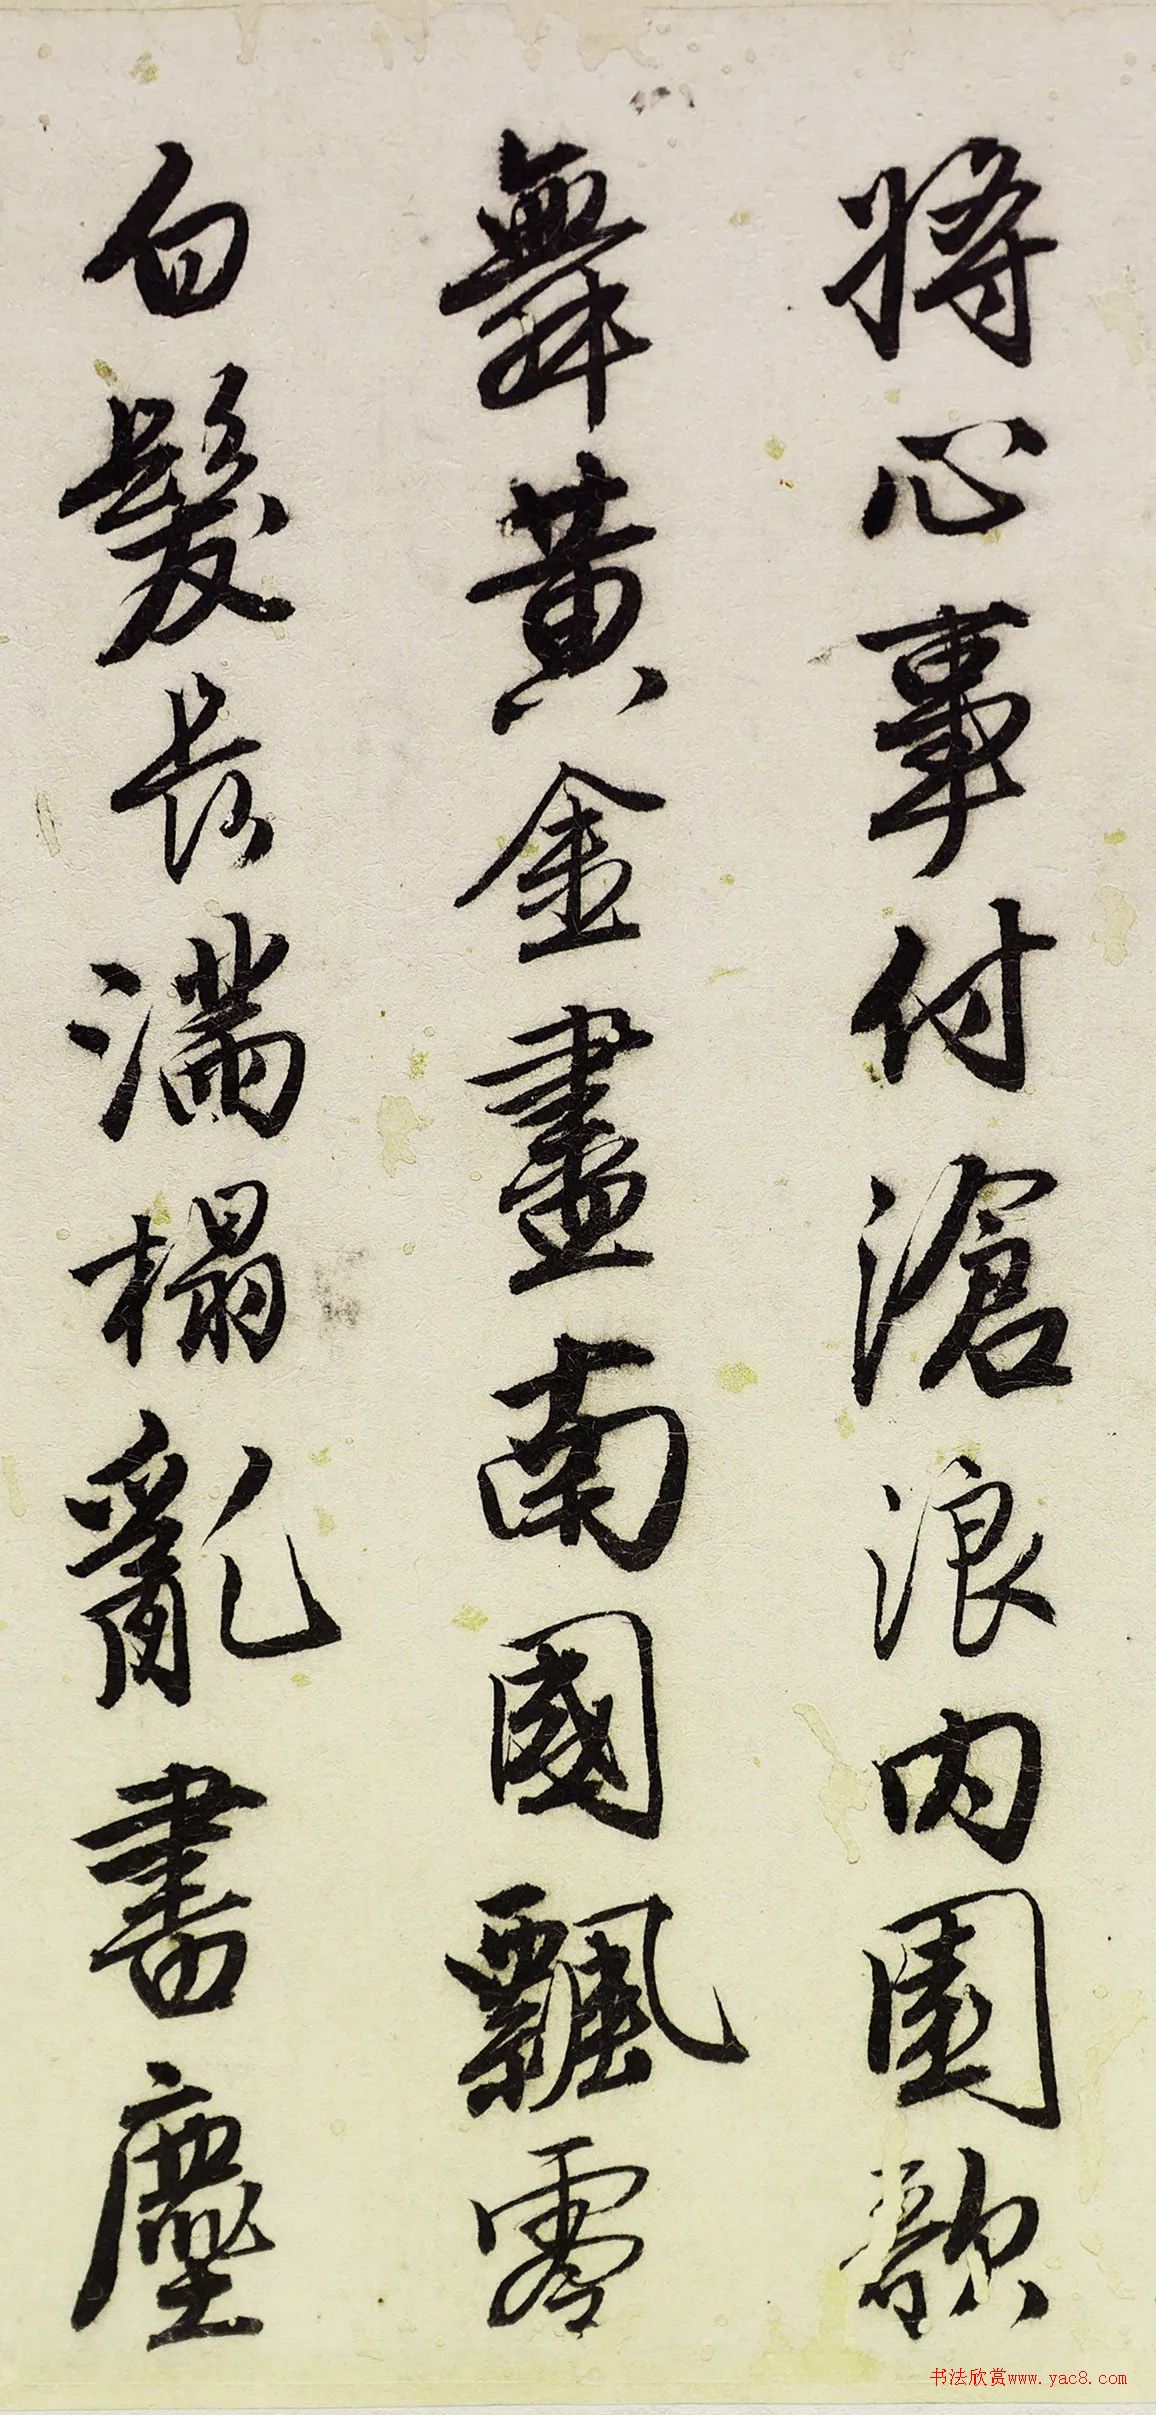 將心事付滄浪內園歌
舞黃金盡南國飄零
白髮長滿榻亂書塵
书法欣赏www.yac8.com